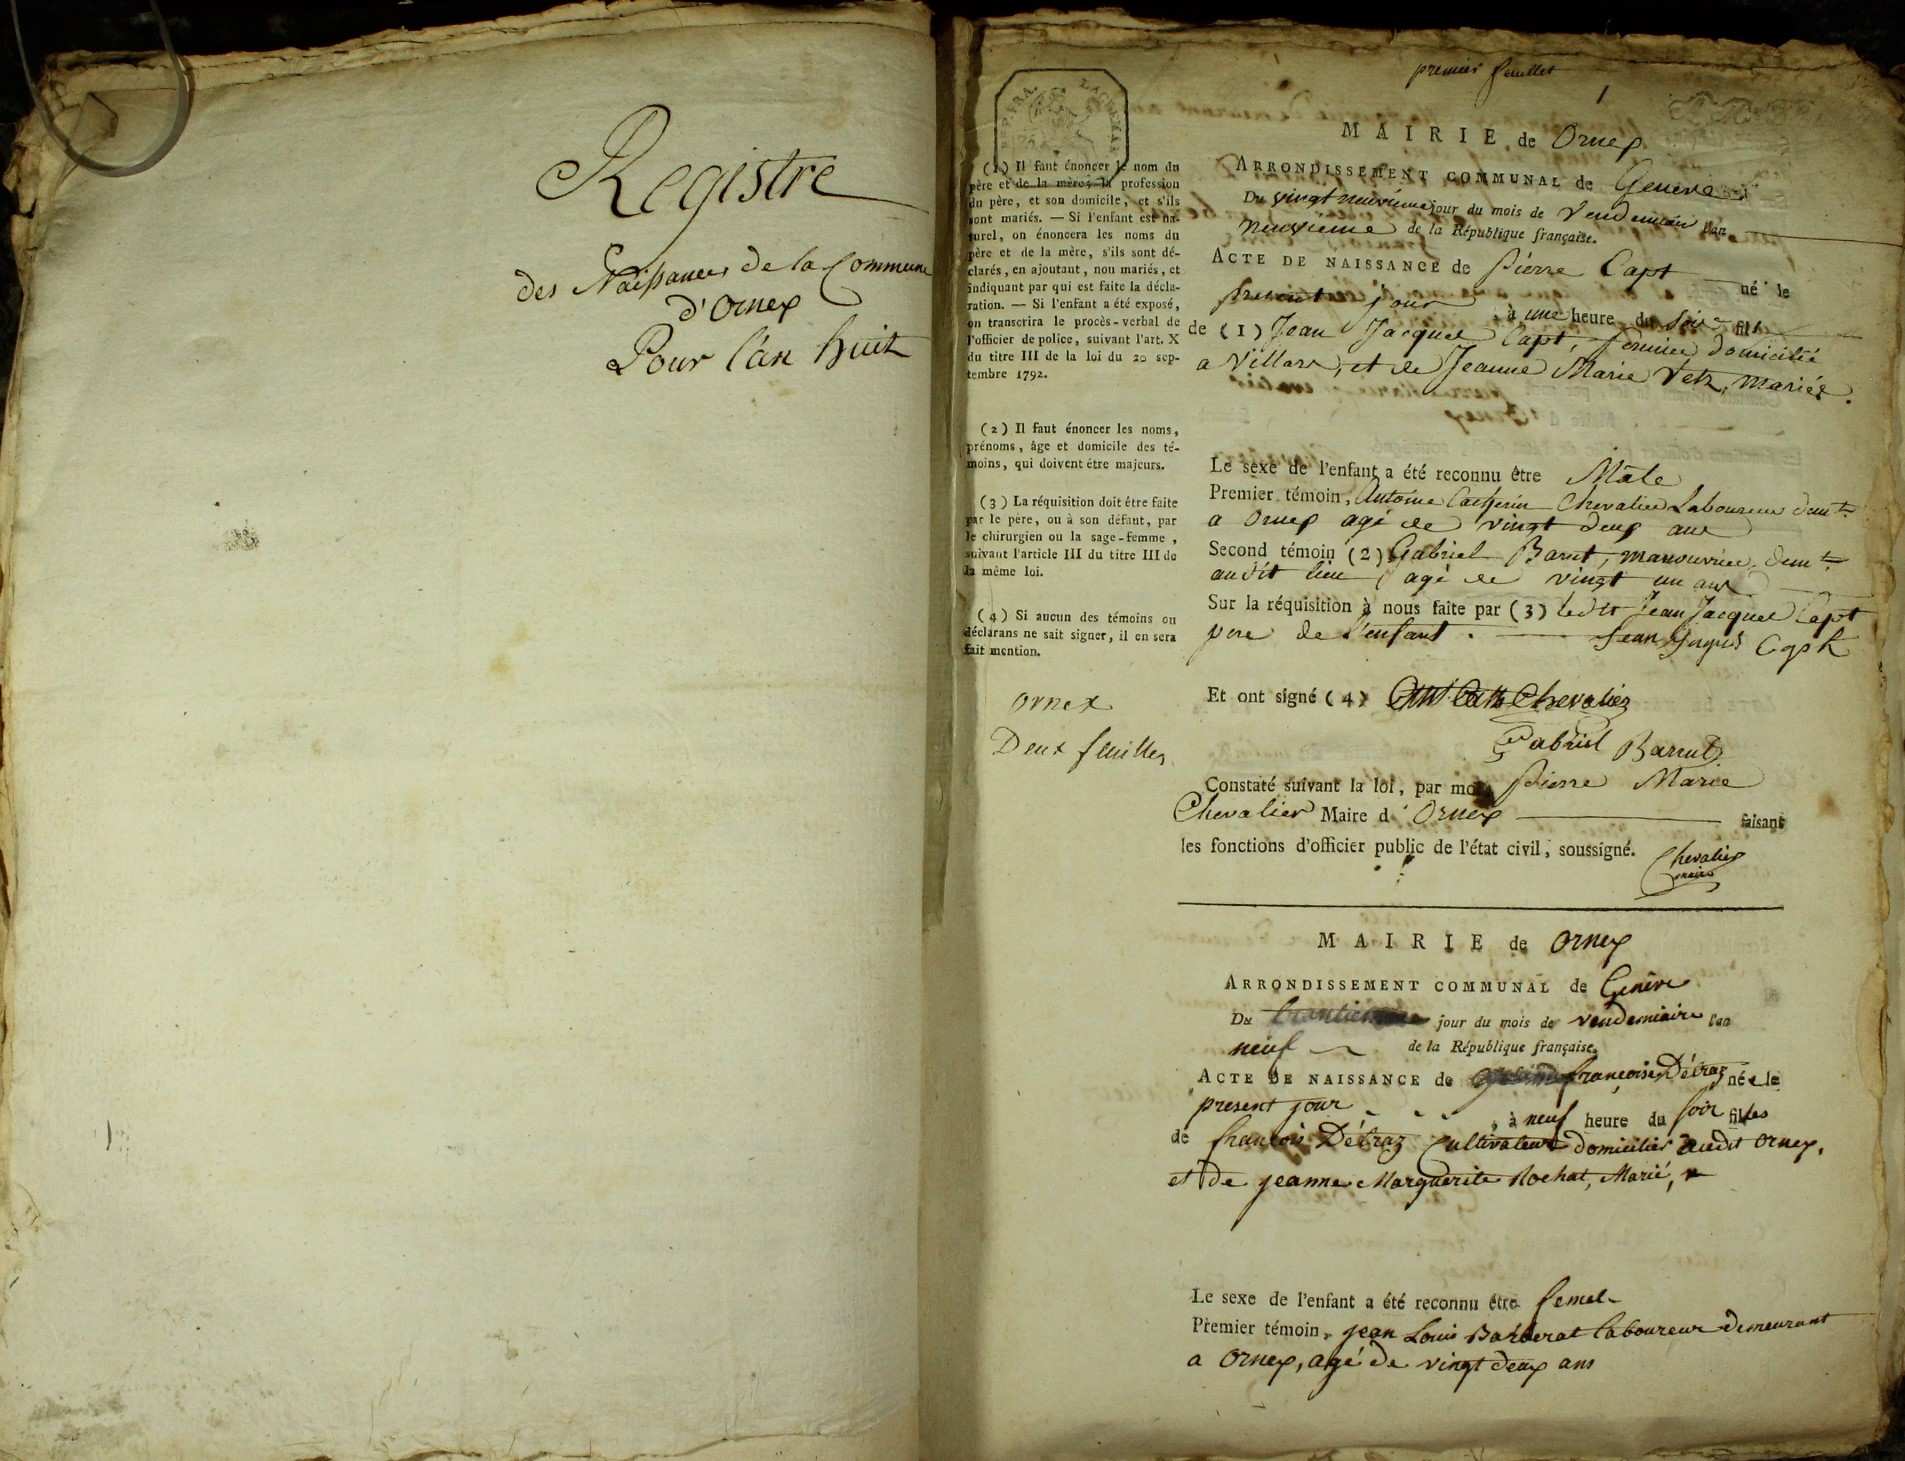 Registre
des Naissances de la Commune
d'Ornex
Pour l'an huit
premier feuillet
1
(1) Il faut énoncer le nom du
père et de la mère, la profession
du père, et son domicile, et s'ils
sont mariés. — Si l'enfant est na-
turel, on énoncera les noms du
père et de la mère, s'ils sont dé-
clarés, en ajoutant, non mariés, et
indiquant par qui est faite la décla-
ration. — Si l'enfant a été exposé,
on transcrira le procès-verbal de
l'officier de police, suivant l'art. X
du titre III de la loi du 20 sep-
tembre 1792.
(2) Il faut énoncer les noms,
prénoms, âge et domicile des té-
moins, qui doivent être majeurs.
(3) La réquisition doit être faite
par le père, ou à son défaut, par
le chirurgien ou la sage-femme,
suivant l'article III du titre III de
la même loi.
(4) Si aucun des témoins ou
déclarans ne sait signer, il en sera
fait mention.
Ornex
Deux feuilles
MAIRIE de Ornex
ARRONDISSEMENT COMMUNAL de Genève
Du vingt neuvieme jour du mois de Vendemiair l'an
neuvieme de la République française.
ACTE DE NAISSANCE de Pierre Capt né le
present jour, à une heure du soir fils
de (1) Jean Jacques Capt, fermier domicilié
a Villars, et de Jeanne Marie Vetz, mariés.
Le sexe de l'enfant a été reconnu être Mâle
Premier témoin, Antoine Catherin Chevalier Laboureur demt.
a Ornex agé de vingt deux ans
Second témoin (2) Gabriel Barrut, manouvrier, demt.
audit lieu agé de vingt un ans
Sur la réquisition à nous faite par (3) ledit Jean Jacques Capt
pere de l'enfant. Jean Jaques Capt
Et ont signé (4) Ant Cath Chevalier
Gabriel Barrut
Constaté suivant la loi, par moi Pierre Marie
Chevalier Maire d'Ornex faisant
les fonctions d'officier public de l'état civil, soussigné. Chevalier
maire
MAIRIE de Ornex
ARRONDISSEMENT COMMUNAL de Genève
Du trantieme jour du mois de vendemiaire l'an
neuf de la République française.
ACTE DE NAISSANCE de françoise Détraz née le
present jour, à neuf heure du soir filles
de françois Détraz Cultivateur domicilier audit Ornex,
et de jeanne Marguerite Rochat, Marié,
Le sexe de l'enfant a été reconnu être femel
Premier témoin, jean Louis Barberat laboureur demeurant
a Ornex, agé de vingt deux ans